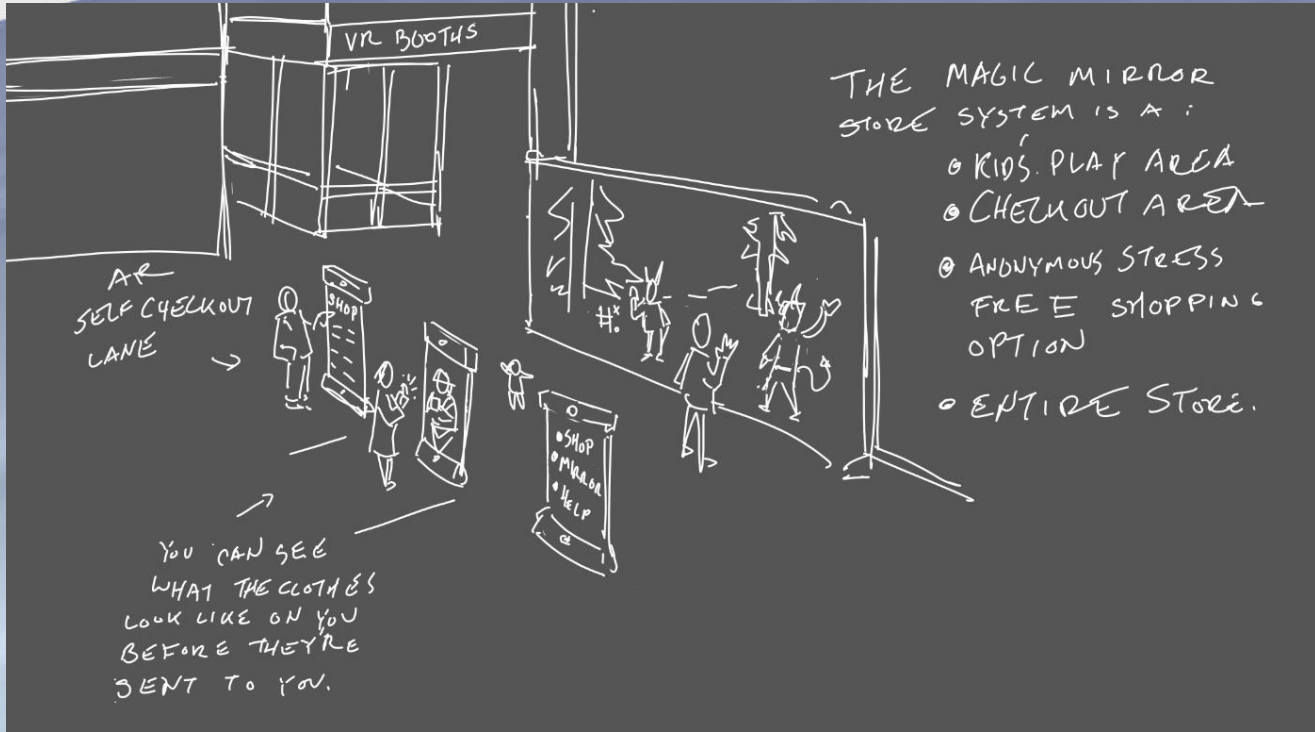 VR BOOTHS
THE MAGIC MIRROR
STORE SYSTEM IS A :
• KIDS PLAY AREA
• CHECKOUT AREA
• ANONYMOUS STRESS
FREE SHOPPING
OPTION
• ENTIRE STORE.
AR
SELF CHECKOUT
LANE
SHOP
#
• SHOP
• MIRROR
• HELP
YOU CAN SEE
WHAT THE CLOTHES
LOOK LIKE ON YOU
BEFORE THEY'RE
SENT TO YOU.